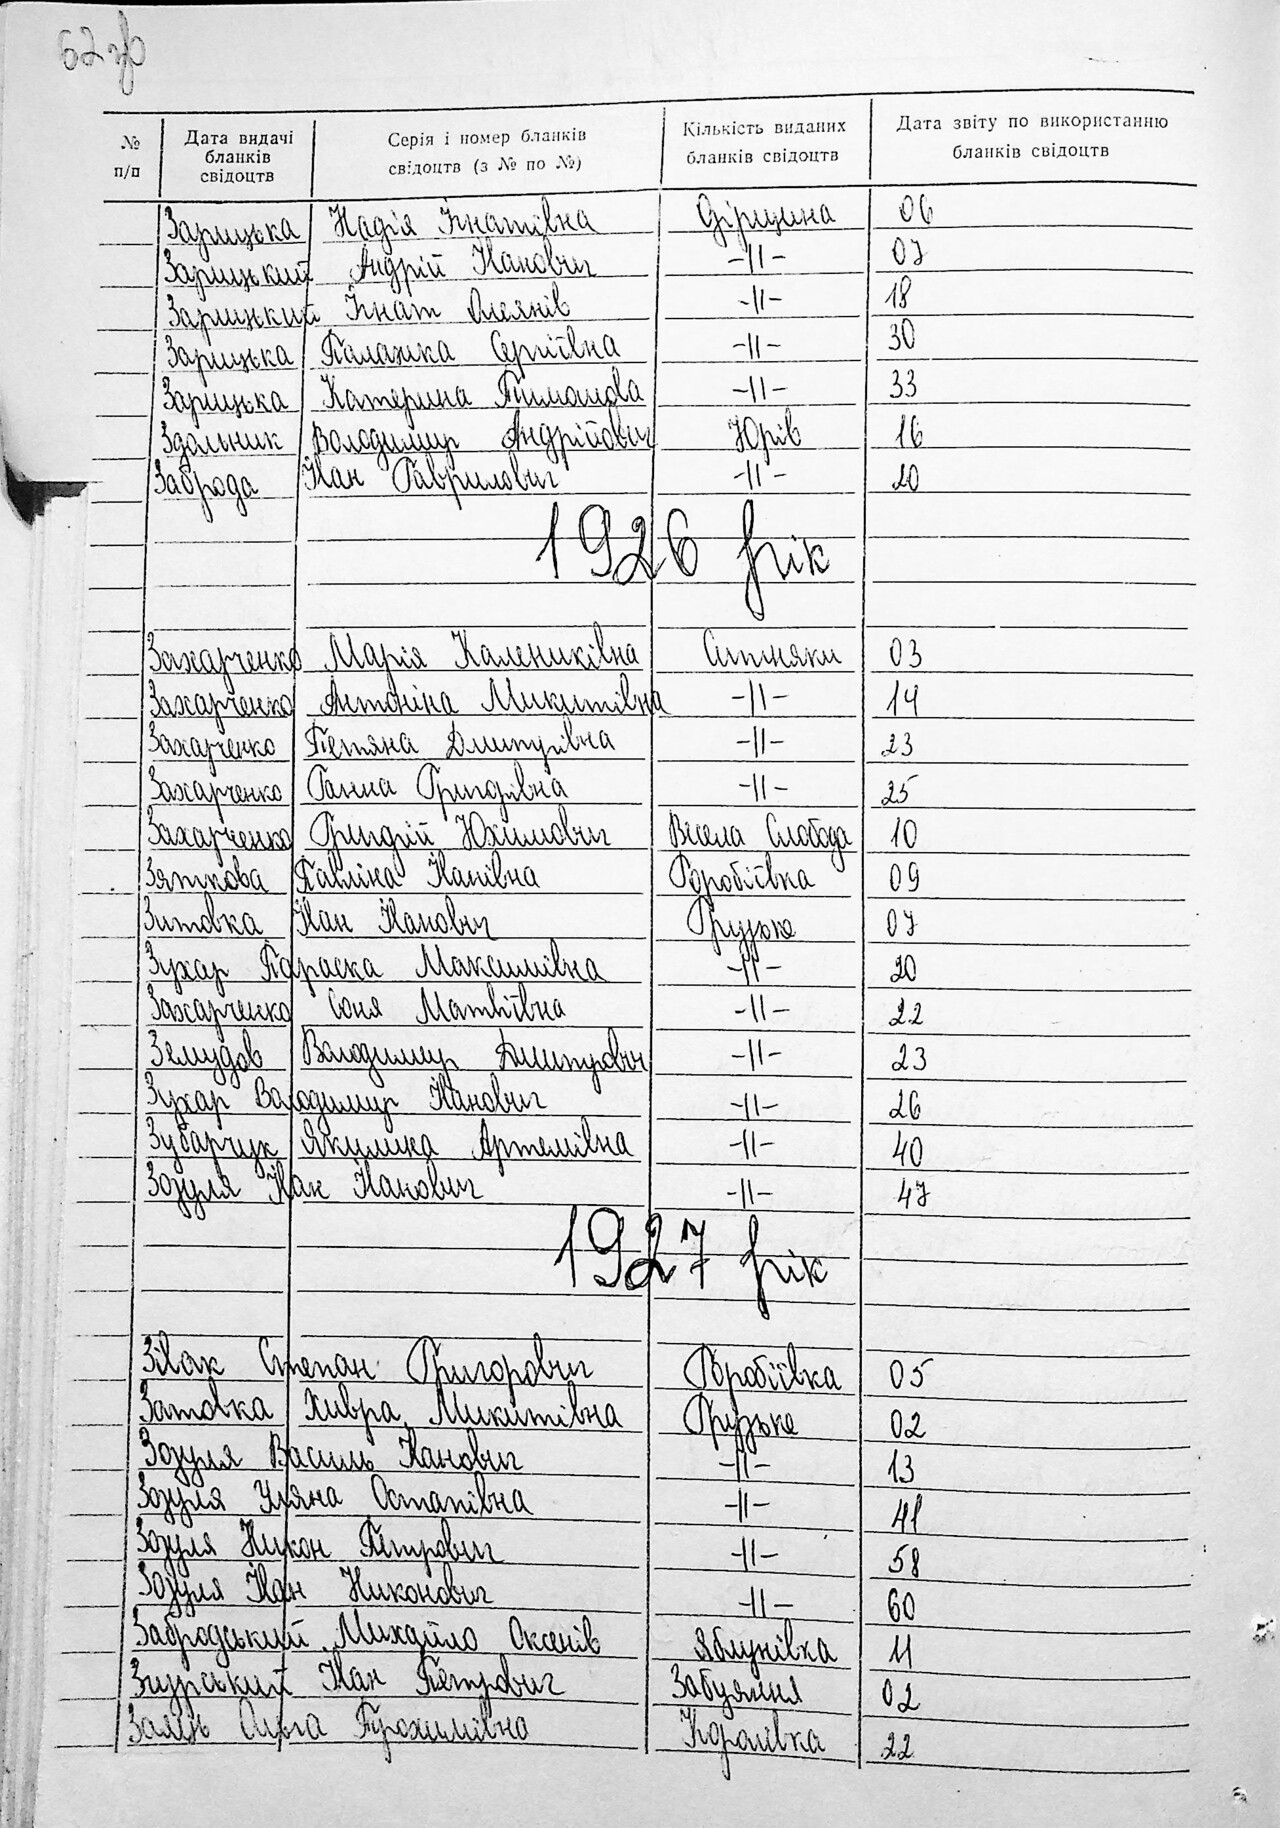 62 зв
№ п/п
Дата видачі бланків свідоцтв
Серія і номер бланків свідоцтв (з № по №)
Кількість виданих бланків свідоцтв
Дата звіту по використанню бланків свідоцтв
Зарицька Надія Ігнатівна Юрівщина 06
Зарицький Андрій Іванович -||- 07
Зарицький Ігнат -||- 18
Зарицька Палажка Сергіївна -||- 30
Зарицька Катерина Тимошова -||- 33
Здольник Володимир Андрійович Юрів 16
Заброда Іван Гаврилович -||- 20
1926 рік
Захарченко Марія Калениківна Ситняки 03
Захарченко Антоніна Микитівна -||- 14
Захарченко Тетяна Дмитрівна -||- 23
Захарченко Ганна Григорівна -||- 25
Захарченко Григорій Юхимович Весела Слобода 10
Зяткова Павліна Іванівна Воробіївка 09
Зитовка Іван Іванович Грузьке 07
Зухар Параска Максимівна -||- 20
Захарченко Соня Матвіївна -||- 22
Земудов Володимир Дмитрович -||- 23
Зухар Володимир Іванович -||- 26
Зубарчук Якилина Артемівна -||- 40
Зозуля Іван Іванович -||- 47
1927 рік
Зівак Степан Григорович Воробіївка 05
Затовка Хивра Микитівна Грузьке 02
Зозуля Василь Іванович -||- 13
Зозуля Уляна Остапівна -||- 41
Зозуля Никон Петрович -||- 58
Зозуля Іван Никонович -||- 60
Забродський Михайло Оксенів Яблунівка 11
Згурський Іван Петрович Забуяння 02
Заяць Ольга Трохимівна Королівка 22